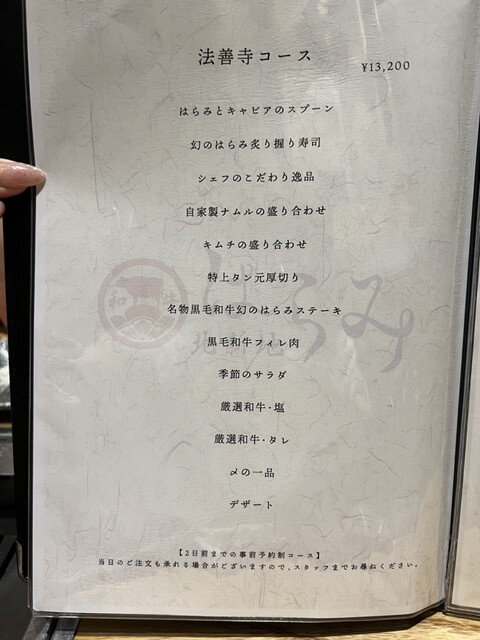 法善寺コース
¥13,200
はらみとキャビアのスプーン
幻のはらみ炙り握り寿司
シェフのこだわり逸品
自家製ナムルの盛り合わせ
キムチの盛り合わせ
特上タン元厚切り
名物黒毛和牛幻のはらみステーキ
黒毛和牛フィレ肉
季節のサラダ
厳選和牛·塩
厳選和牛·タレ
〆の一品
デザート
【2日前までの事前予約制コース】
当日のご注文も承れる場合がございますので、スタッフまでお尋ねください。
はらみ